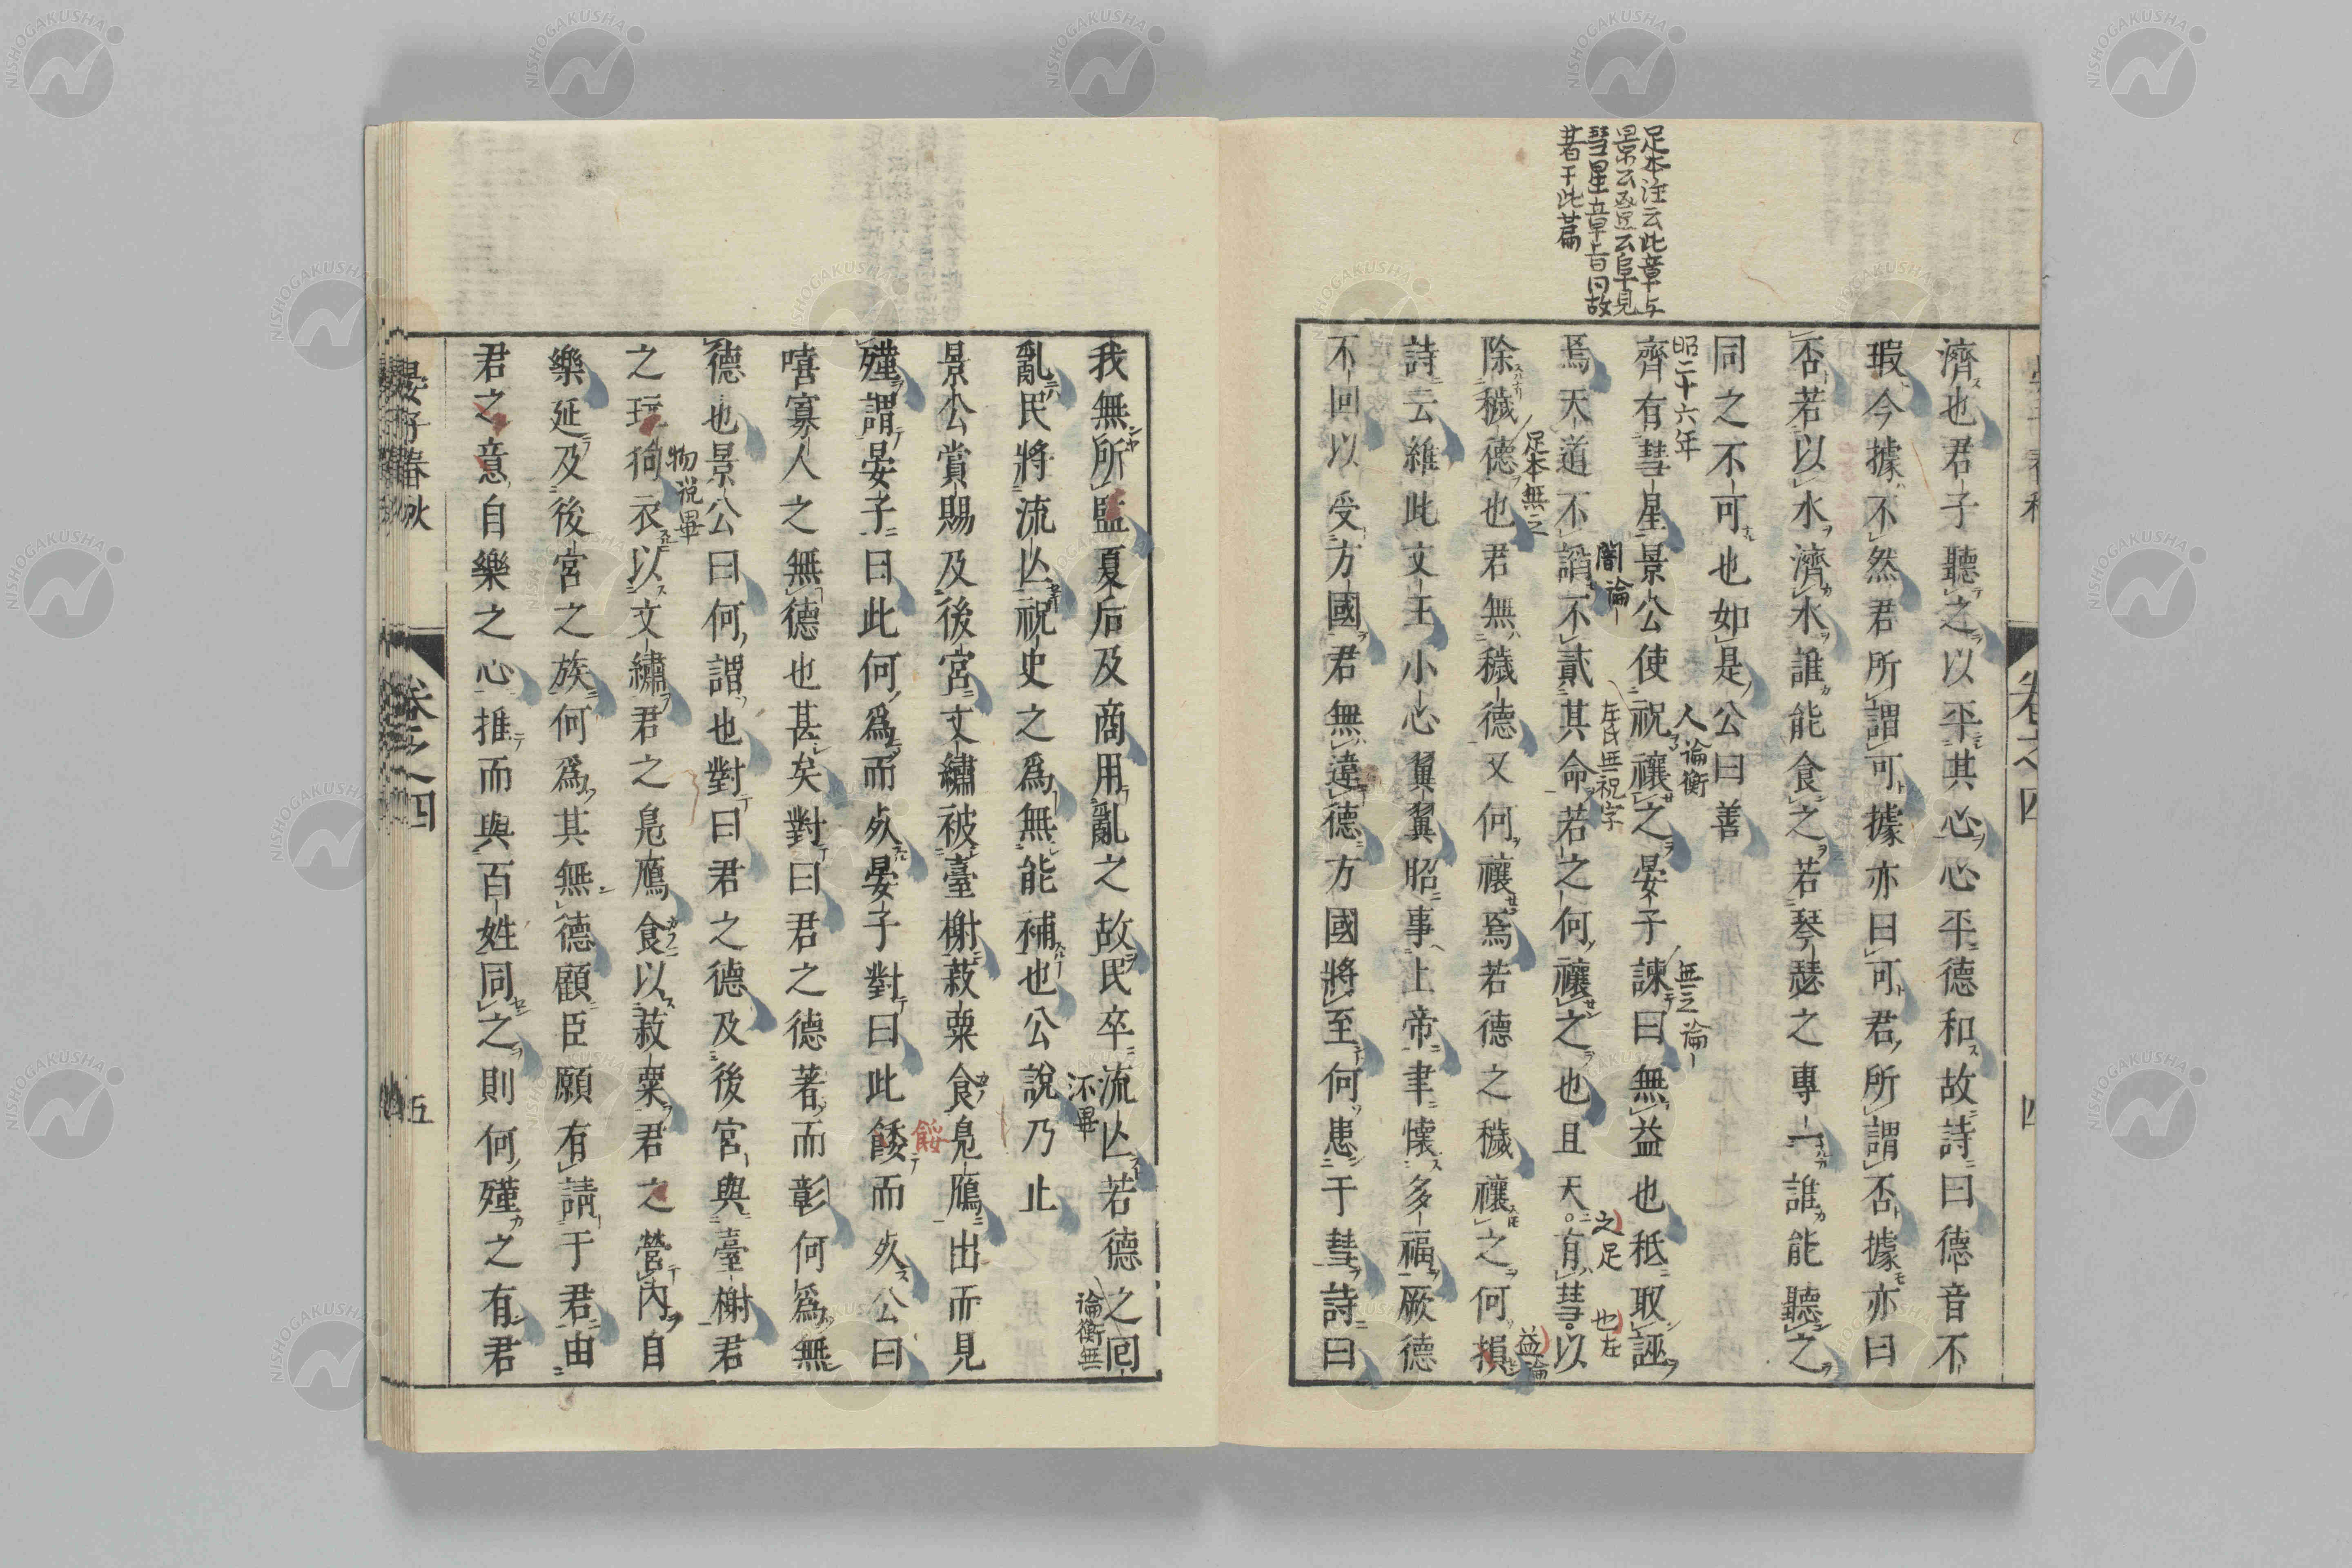 足本注云此章与
景公
彗星章旨同故
著于此篇
濟也君子聽之以平其心心平德和故詩曰德音不
瑕今據不然君所謂可據亦曰可君所謂否據亦曰
否若以水濟水誰能食之若琴瑟之專一誰能聽之
同之不可也如是公曰善
昭二十六年
人論衡
無之論
齊有彗星景公使祝禳之晏子諫曰無益也秪取誣
闇論
左氏無祝字
之足
也左
焉天道不謟不貳其命若之何禳之也且天有彗以
足本無之
益論
除穢德也君無穢德又何禳焉若德之穢禳之何損
詩云維此文王小心翼翼昭事上帝聿懷多福厥德
不回以受方國君無違德方國將至何患于彗詩曰
晏子春秋
卷之四
四
我無所監夏后及商用亂之故民卒流亾若德之回
論衡無
亂民將流亾祝史之為無能補也公說乃止
不畢
景公賞賜及後宮文繡被臺榭菽粟食鳧鴈出而見
餒
殣謂晏子曰此何為而死晏子對曰此餧而死公曰
嘻寡人之無德也甚矣對曰君之德著而彰何為無
德也景公曰何謂也對曰君之德及後宮與臺榭君
物説畢
之玩狗衣以文繡君之鳧鴈食以菽粟君之營內自
樂延及後宮之族何為其無德顧臣願有請于君由
君之意自樂之心推而與百姓同之則何殣之有君
晏子春秋
卷之四
五
NISHOGAKUSHA